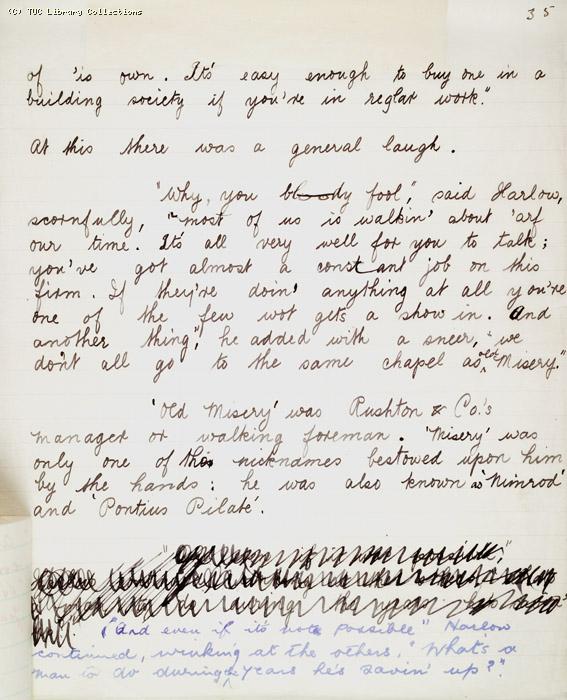 (C) TUC Library Collections
35
of 'is own. It's easy enough to buy one in a
building society if you're in reglar work."
At this there was a general laugh.
"Why, you bloody fool", said Harlow,
scornfully, "most of us is walkin' about 'arf
our time. It's all very well for you to talk;
you've got almost a constant job on this
firm. If they're doin' anything at all you're
one of the few wot gets a show in. And
another thing", he added with a sneer, "we
don't all go to the same chapel as old Misery."
'Old Misery' was Rushton & Co.'s
manager or walking foreman. 'Misery' was
only one of the nicknames bestowed upon him
by the hands: he was also known as 'Nimrod'
and 'Pontius Pilate'.
possible,"
("And even if it's not possible" Harlow
continued, winking at the others, "What's a
man to do during the years he's savin' up?".